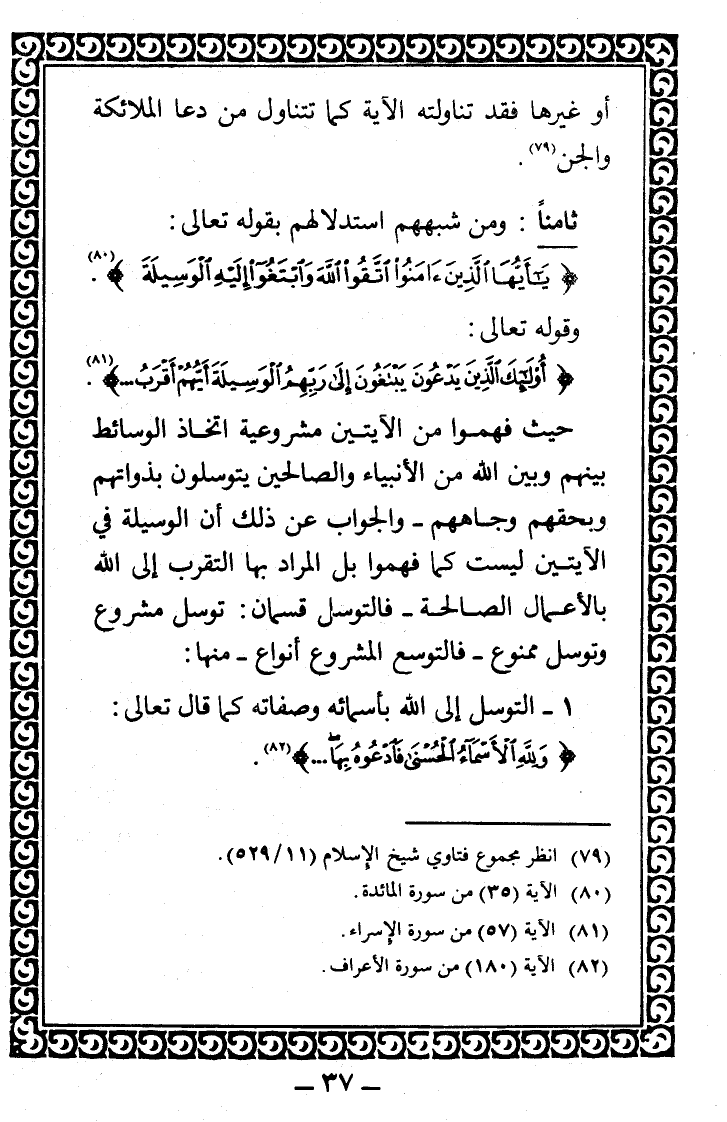 أو غيرها فقد تناولته الآية كما تتناول من دعا الملائكة
والجن(٧٩) .
ثامناً : ومن شبههم استدلالهم بقوله تعالى :
﴿ يَٰٓأَيُّهَا ٱلَّذِينَ ءَامَنُوا۟ ٱتَّقُوا۟ ٱللَّهَ وَٱبْتَغُوٓا۟ إِلَيْهِ ٱلْوَسِيلَةَ ﴾(٨٠) .
وقوله تعالى :
﴿ أُو۟لَٰٓئِكَ ٱلَّذِينَ يَدْعُونَ يَبْتَغُونَ إِلَىٰ رَبِّهِمُ ٱلْوَسِيلَةَ أَيُّهُمْ أَقْرَبُ ... ﴾(٨١) .
حيث فهموا من الآيتين مشروعية اتخاذ الوسائط
بينهم وبين الله من الأنبياء والصالحين يتوسلون بذواتهم
وبحقهم وجاههم ـ والجواب عن ذلك أن الوسيلة في
الآيتين ليست كما فهموا بل المراد بها التقرب إلى الله
بالأعمال الصالحة ـ فالتوسل قسمان : توسل مشروع
وتوسل ممنوع ـ فالتوسع المشروع أنواع ـ منها :
١ ـ التوسل إلى الله بأسمائه وصفاته كما قال تعالى :
﴿ وَلِلَّهِ ٱلْأَسْمَآءُ ٱلْحُسْنَىٰ فَٱدْعُوهُ بِهَا ... ﴾(٨٢) .
(٧٩) انظر مجموع فتاوي شيخ الإسلام (١١/٥٢٩) .
(٨٠) الآية (٣٥) من سورة المائدة .
(٨١) الآية (٥٧) من سورة الإسراء .
(٨٢) الآية (١٨٠) من سورة الأعراف .
ـ ٣٧ ـ